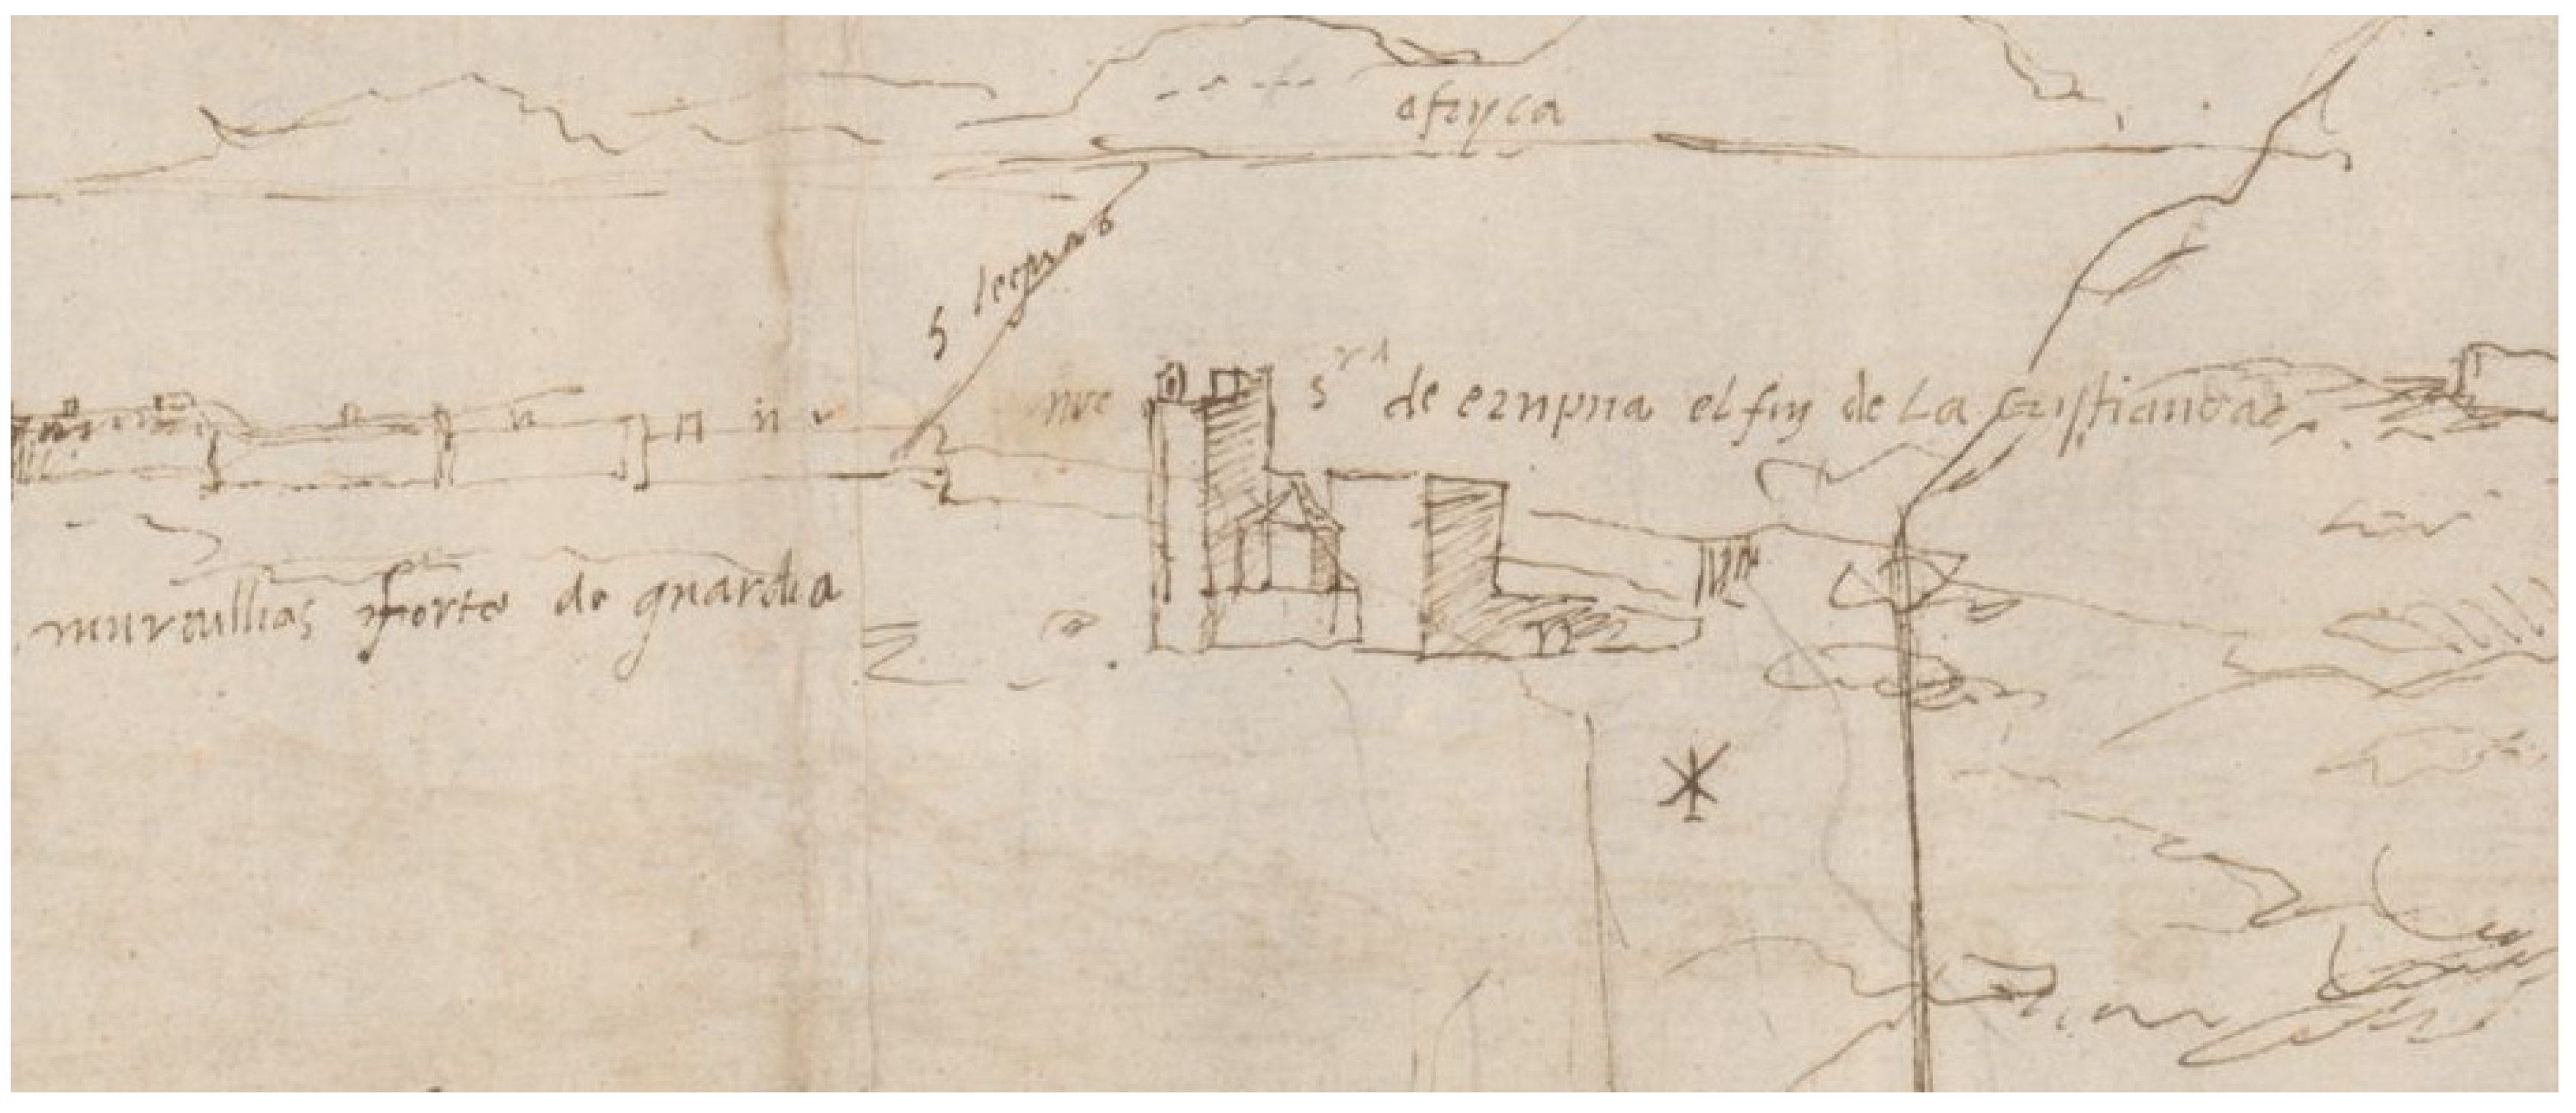 afryca
5 leguas
nre Sra de el fin de La Cristiandad
muraillias forte de guardia